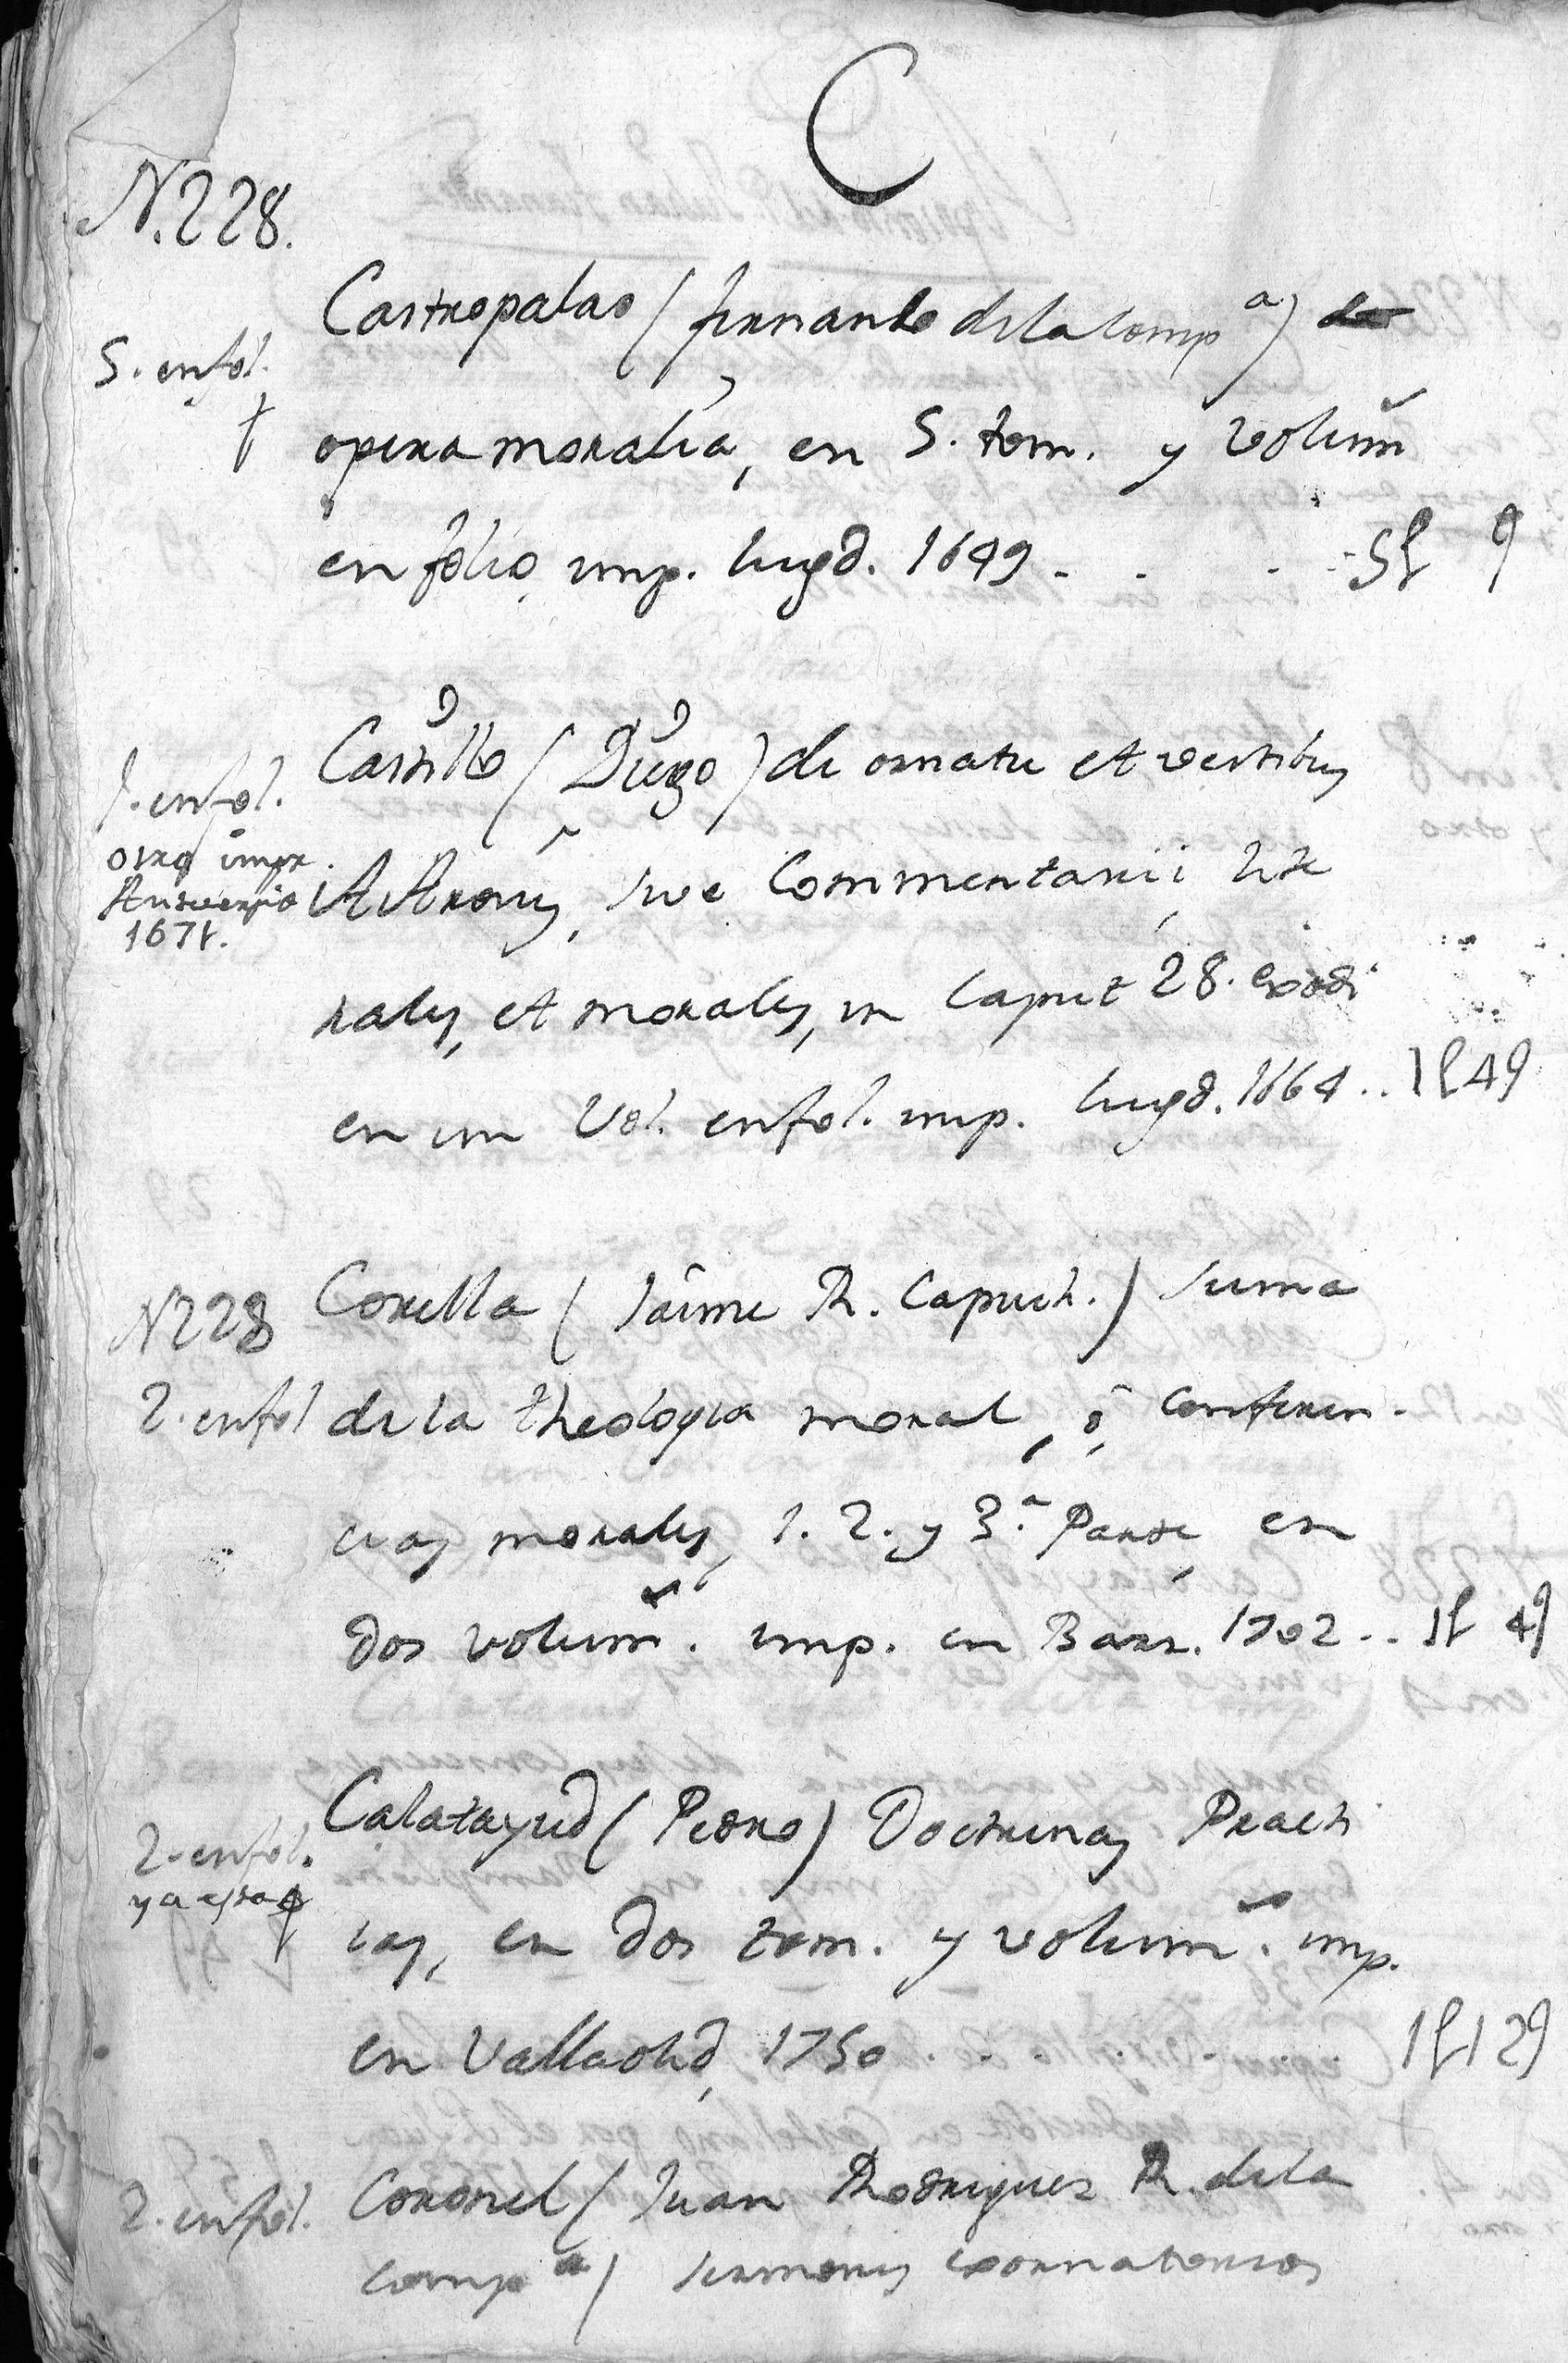 C
N.228.
Castropalao (fernando de la Comp.a)
5. en fol.
opera moralia, en 5. tom. y volum
en folio, imp. Lugd. 1649 . . . . 5l 9
Castillo (Diego) de ornatu et vestibus
1. en fol.
otro impr.
Antuerpia
1671.
AAronis, sive Commentarii, lite
rales, et morales, in Caput 28. exodi
en un Vol. en fol. imp. Lugd. 1664 .. 1l 49
N228 Corella (Jaime R. Capuch.) Suma
2. en fol de la theologia moral, ó, Conferen-
cias morales, 1. 2. y 3.a Parte, en
dos volum. imp. en Barz. 1702 .. 1l 49
Calatayud (Pedro) Doctrinas Practi
2. en fol.
ya esta
cas, en dos tom. y volum. imp.
en Valladolid, 1750 . . . . . 1l 129
2. en fol. Coronel (Juan Rodriguez R. de la
Comp.a) Sermones exornatorios